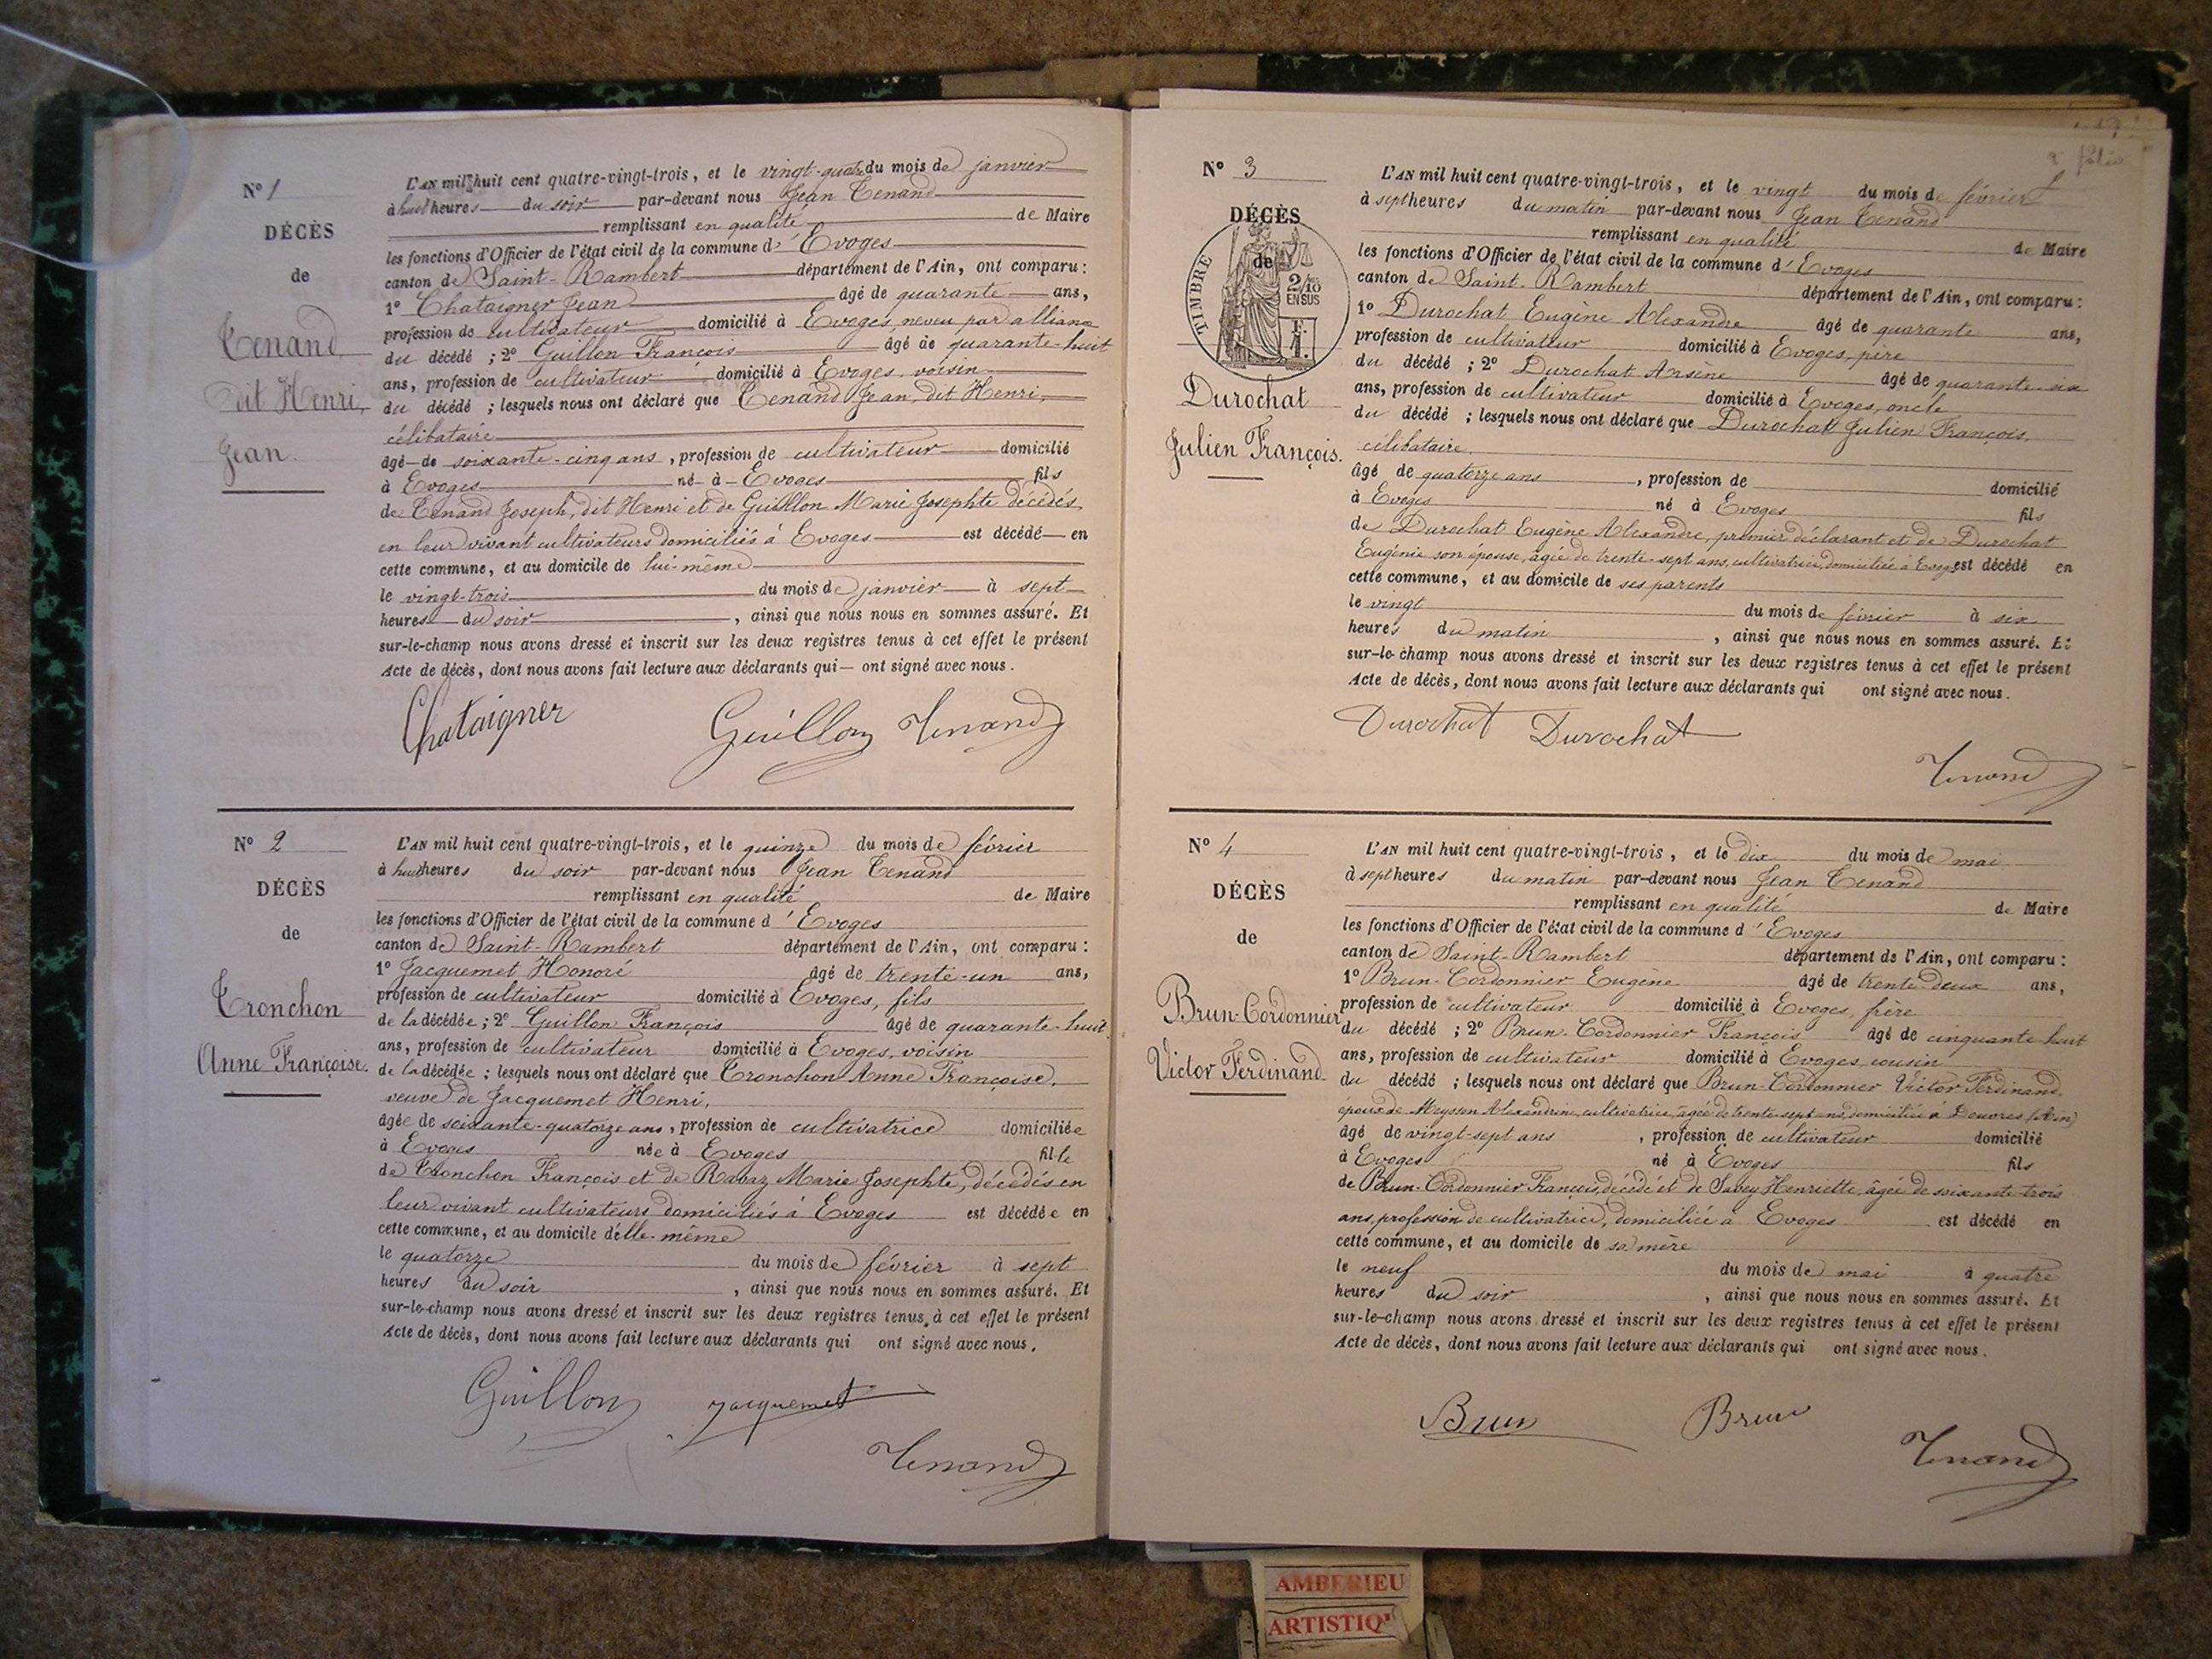 N° 1
DÉCÈS
de
Tenand
dit Henri,
Jean.
L'AN mil huit cent quatre-vingt-trois, et le vingt-quatre du mois de janvier
à huit heures du soir par-devant nous Jean Tenand
remplissant en qualité de Maire
les fonctions d'Officier de l'état civil de la commune d'Evoges
canton de Saint-Rambert département de l'Ain, ont comparu :
1° Chataigner Jean âgé de quarante ans,
profession de cultivateur domicilié à Evoges, neveu par alliance
du décédé ; 2° Guillon François âgé de quarante-huit
ans, profession de cultivateur domicilié à Evoges, voisin
du décédé ; lesquels nous ont déclaré que Tenand Jean, dit Henri,
célibataire
âgé de soixante-cinq ans, profession de cultivateur domicilié
à Evoges né à Evoges fils
de Tenand Joseph, dit Henri et de Guillon Marie Josephte décédés,
en leur vivant cultivateurs domiciliés à Evoges est décédé en
cette commune, et au domicile de lui-même
le vingt-trois du mois de janvier à sept
heures du soir, ainsi que nous nous en sommes assuré. Et
sur-le-champ nous avons dressé et inscrit sur les deux registres tenus à cet effet le présent
Acte de décès, dont nous avons fait lecture aux déclarants qui ont signé avec nous.
Chataigner Guillon Tenand
N° 2
DÉCÈS
de
Tronchon
Anne Françoise.
L'AN mil huit cent quatre-vingt-trois, et le quinze du mois de février
à huit heures du soir par-devant nous Jean Tenand
remplissant en qualité de Maire
les fonctions d'Officier de l'état civil de la commune d'Evoges
canton de Saint-Rambert département de l'Ain, ont comparu :
1° Jacquemet Honoré âgé de trente-un ans,
profession de cultivateur domicilié à Evoges, fils
de la décédée ; 2° Guillon François âgé de quarante-huit
ans, profession de cultivateur domicilié à Evoges, voisin
de la décédée ; lesquels nous ont déclaré que Tronchon Anne Françoise,
veuve de Jacquemet Henri,
âgée de soixante-quatorze ans, profession de cultivatrice domiciliée
à Evoges née à Evoges fille
de Tronchon François et de Ravaz Marie Josephte, décédés en
leur vivant cultivateurs domiciliés à Evoges est décédée en
cette commune, et au domicile d'elle-même
le quatorze du mois de février à sept
heures du soir, ainsi que nous nous en sommes assuré. Et
sur-le-champ nous avons dressé et inscrit sur les deux registres tenus à cet effet le présent
Acte de décès, dont nous avons fait lecture aux déclarants qui ont signé avec nous.
Guillon Jacquemet
Tenand
N° 3
DÉCÈS
de
TIMBRE
2/10
EN SUS
Durochat
Julien François.
L'AN mil huit cent quatre-vingt-trois, et le vingt du mois de février
à sept heures du matin par-devant nous Jean Tenand
remplissant en qualité de Maire
les fonctions d'Officier de l'état civil de la commune d'Evoges
canton de Saint-Rambert département de l'Ain, ont comparu :
1° Durochat Eugène Alexandre âgé de quarante ans,
profession de cultivateur domicilié à Evoges, père
du décédé ; 2° Durochat Arsène âgé de quarante-six
ans, profession de cultivateur domicilié à Evoges, oncle
du décédé ; lesquels nous ont déclaré que Durochat Julien François,
célibataire,
âgé de quatorze ans, profession de domicilié
à Evoges né à Evoges fils
de Durochat Eugène Alexandre, premier déclarant et de Durochat
Eugénie son épouse, âgée de trente-sept ans, cultivatrice, domiciliée à Evoges est décédé en
cette commune, et au domicile de ses parents
le vingt du mois de février à six
heures du matin, ainsi que nous nous en sommes assuré. Et
sur-le-champ nous avons dressé et inscrit sur les deux registres tenus à cet effet le présent
Acte de décès, dont nous avons fait lecture aux déclarants qui ont signé avec nous.
Durochat Durochat
Tenand
N° 4
DÉCÈS
de
Brun-Cordonnier
Victor Ferdinand
L'AN mil huit cent quatre-vingt-trois, et le dix du mois de mai
à sept heures du matin par-devant nous Jean Tenand
remplissant en qualité de Maire
les fonctions d'Officier de l'état civil de la commune d'Evoges
canton de Saint-Rambert département de l'Ain, ont comparu :
1° Brun-Cordonnier Eugène âgé de trente-deux ans,
profession de cultivateur domicilié à Evoges, frère
du décédé ; 2° Brun-Cordonnier François âgé de cinquante-huit
ans, profession de cultivateur domicilié à Evoges, cousin
du décédé ; lesquels nous ont déclaré que Brun-Cordonnier Victor Ferdinand,
époux de Meysson Alexandrine, cultivatrice, âgée de trente-sept ans, domiciliée à (Ain)
âgé de vingt-sept ans, profession de cultivateur domicilié
à Evoges né à Evoges fils
de Brun-Cordonnier François, décédé et de Savey Henriette, âgée de soixante-trois
ans, profession de cultivatrice, domiciliée à Evoges est décédé en
cette commune, et au domicile de sa mère
le neuf du mois de mai à quatre
heures du soir, ainsi que nous nous en sommes assuré. Et
sur-le-champ nous avons dressé et inscrit sur les deux registres tenus à cet effet le présent
Acte de décès, dont nous avons fait lecture aux déclarants qui ont signé avec nous.
Brun Brun
Tenand
AMBERIEU
ARTISTIQ